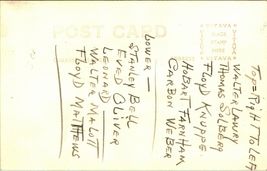 POST CARD
PLACE
STAMP
HERE
Top = Right To Left
Walter Lawry
Thomas Solberg
Floyd Knuppe
Hobart Farnham
Carbon Weber
Lower —
Stanley Bell
Eved Oliver
Leonard
Walter Malott
Floyd Matthews